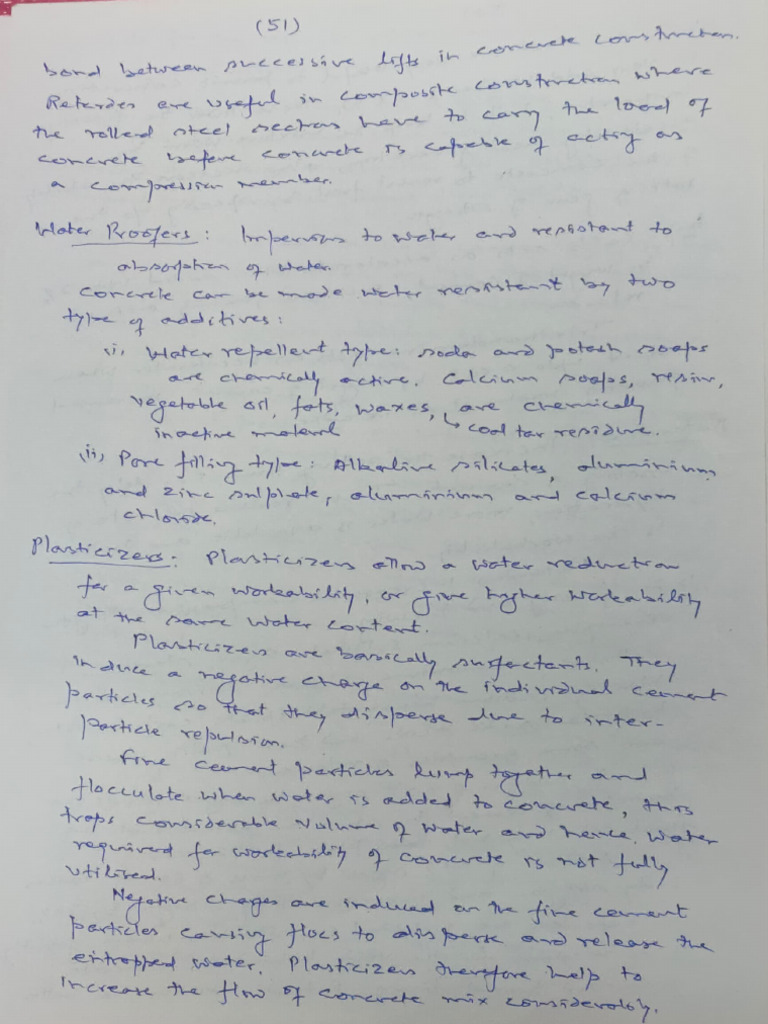 (51)
bond between successive lifts in concrete construction.
Retarders are useful in composite construction where
the rolled steel sections have to carry the load of
concrete before concrete is capable of acting as
a compression member.
Water Proofers: Impervious to water and resistant to
absorption of water.
Concrete can be made water resistant by two
type of additives:
(i) Water repellent type: soda and potash soaps
are chemically active. Calcium soaps, resin,
vegetable oil, fats, waxes, are chemically
inactive material ↳ coal tar residue.
(ii) Pore filling type: Alkaline silicates, aluminium
and zinc sulphate, aluminium and calcium
chloride.
Plasticizers: Plasticizers allow a water reduction
for a given workability, or give higher workability
at the same water content.
Plasticizers are basically surfectants. They
induce a negative charge on the individual cement
particles so that they disperse due to inter-
particle repulsion.
Fine cement particles lump together and
flocculate when water is added to concrete, this
traps considerable volume of water and hence, water
required for workability of concrete is not fully
utilised.
Negative charges are induced on the fine cement
particles causing flocs to disperse and release the
entrapped water. Plasticizers therefore help to
increase the flow of concrete mix considerably.